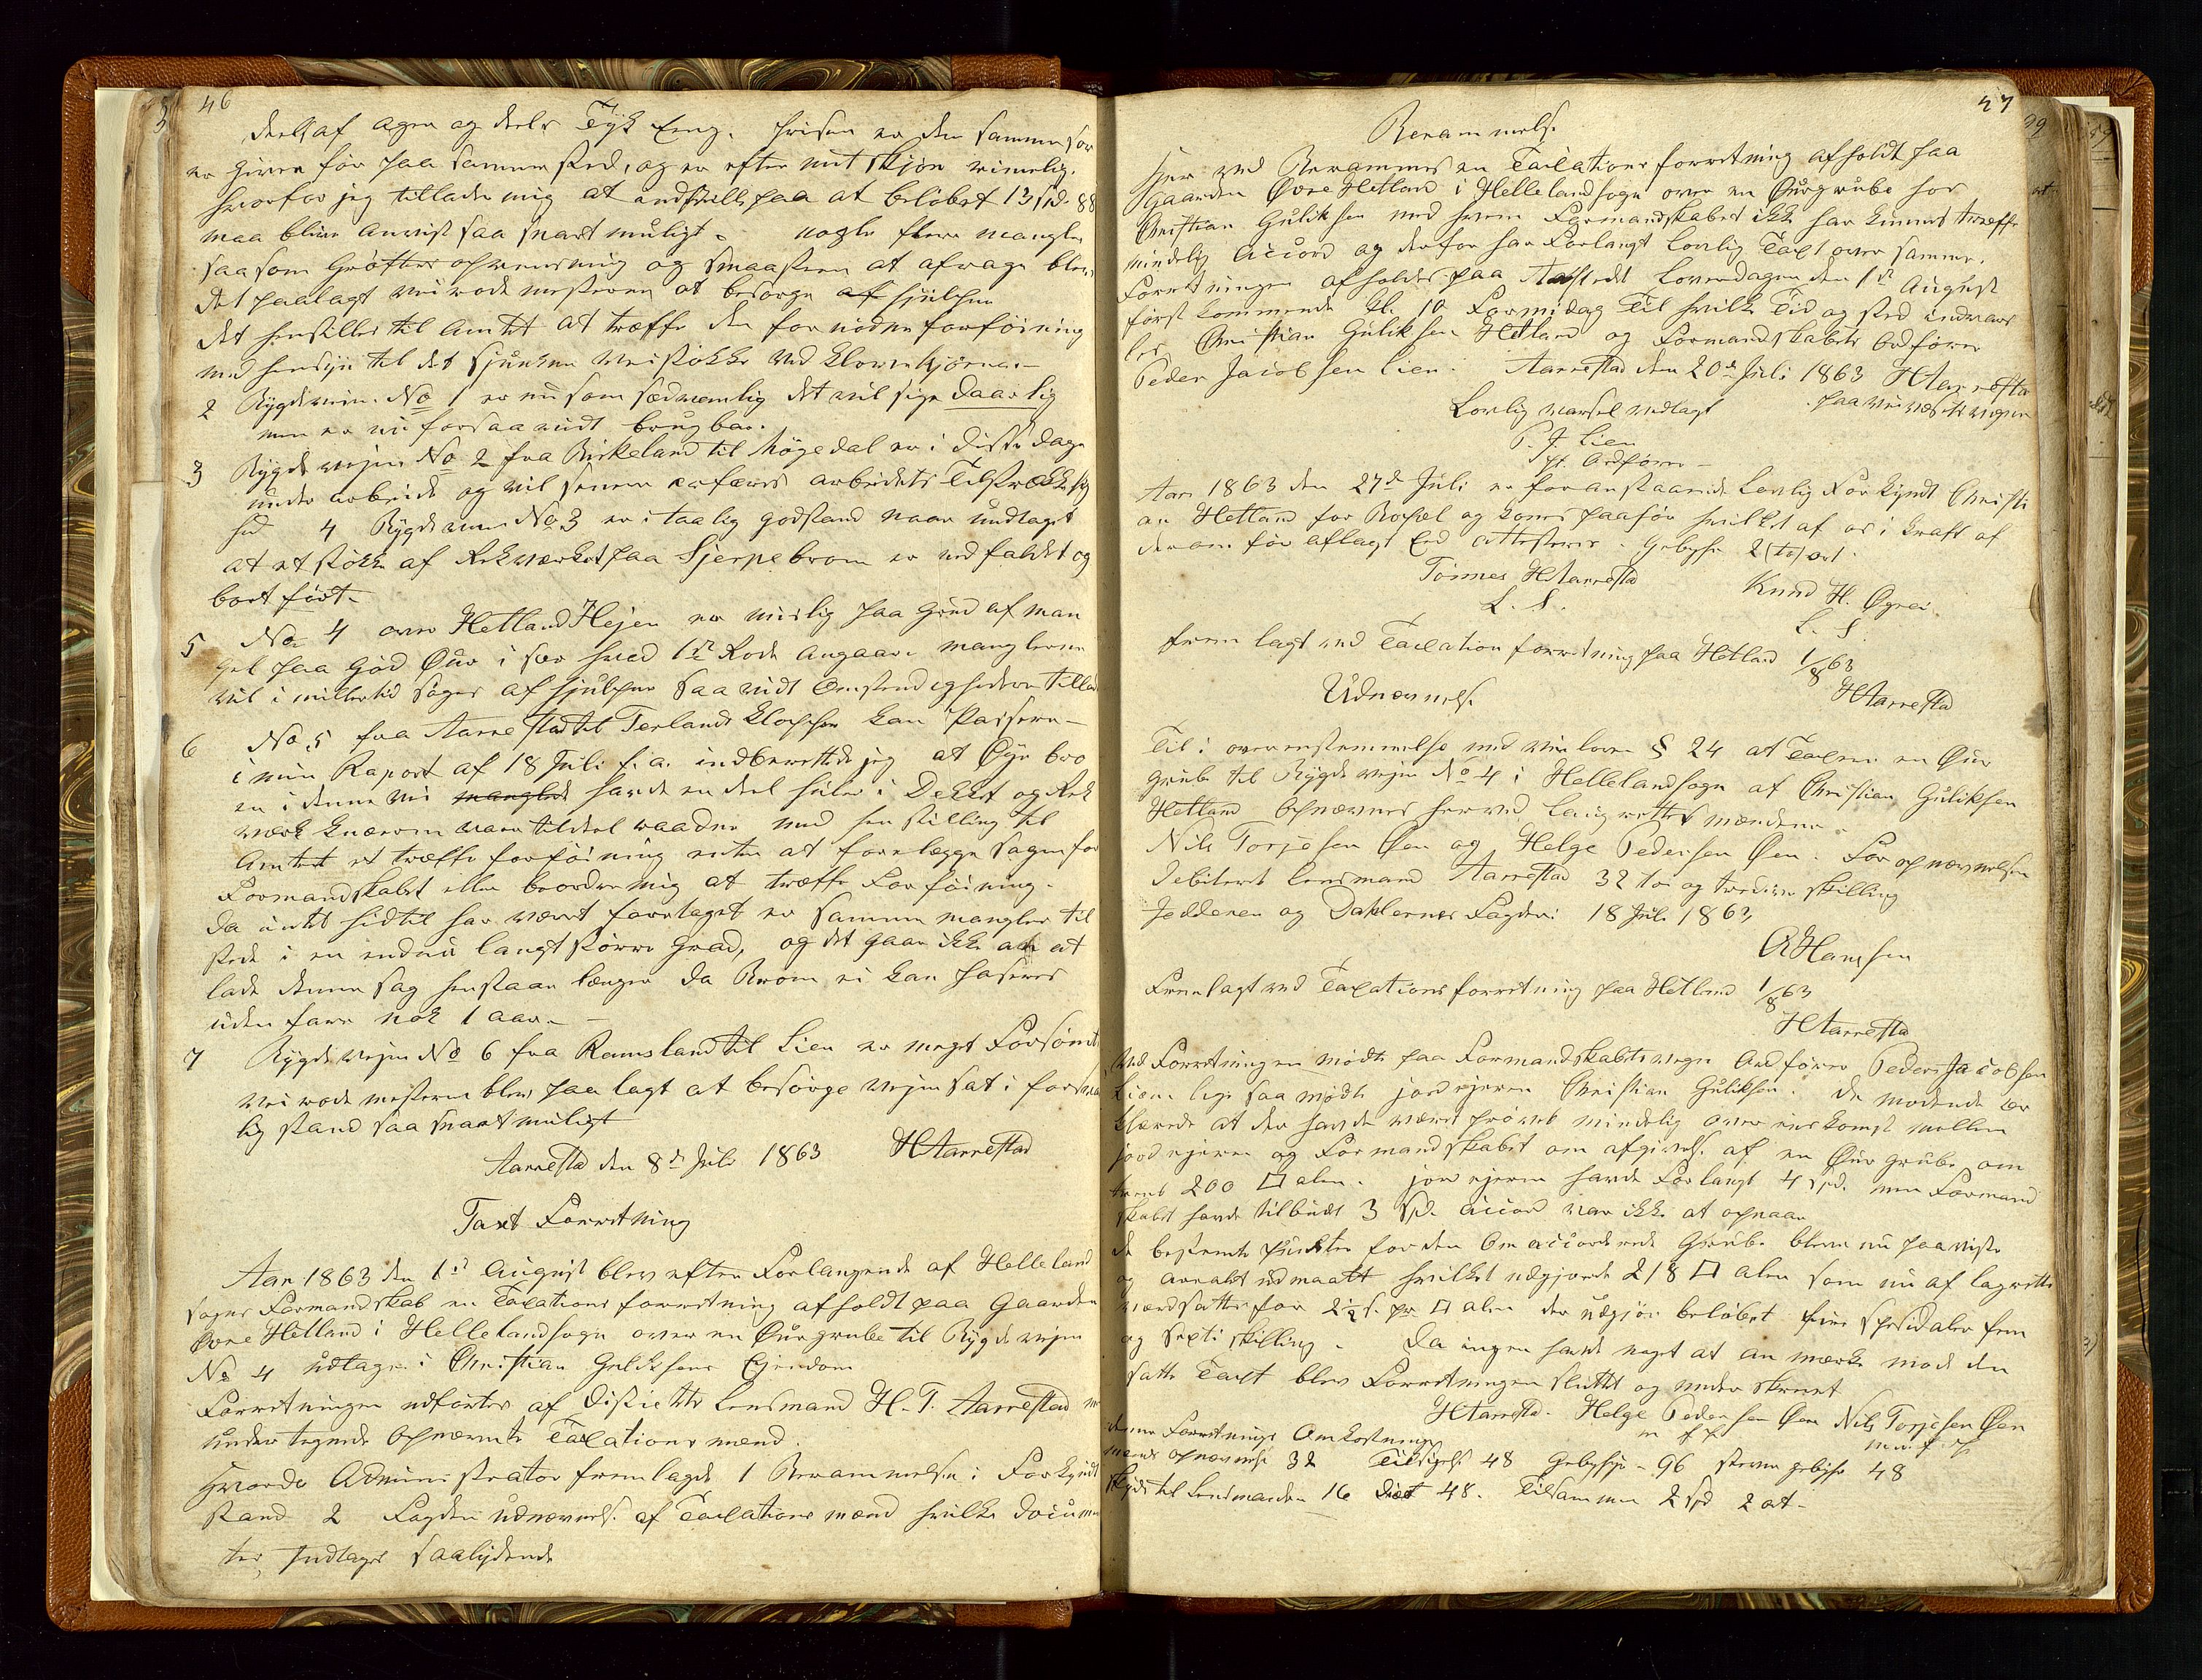 46
deels af ager og deels Tyk Eng. Prisen er den samme som
er given før paa samme sted, og er efter mit skjøn rimelig.
hvorfor jeg tillader mig at indstille paa at beløbet 13 spd. 88
maa blive anvist saa snart muligt. nogle flere mangler
saasom Grøfters oprensning og Smaasteen at afrage blev
det paalagt veirodemesteren at besørge af hjulpen
det henstilles til Amtet at træffe den fornødne forføining
med hensyn til det sjunkne veistøkke ved Klovenhjørnes.
2 Bygdeveien No 1 er nu som sædvanlig det vil sige daarlig
men er nu forsaavidt brugbar.
3 Bygdeveien No 2 fra Birkeland til Møgedal er i disse dage
under arbeide og vil senere erfares arbeidets Tilstrækkelig
hed 4 Bygdeveien No 3 er i taalig godstand naar undtaget
at et støkke af Rekværket paa Sjerpebroen er nedfaldet og
bortført.
5 No 4 over Hetland Hejen er mislig paa grund af man
gel paa god Øur i sær hvad 1ste Rode angaar. manglerne
vil imidlertid søges af hjulpne saavidt Omstendighederne tillad
6 No 5 fra Aarrestad til Terlands Kloppen kan Passere
i min Raport af 18 Juli f. a. indberettede jeg at Øye bro
en i denne vei manglede havde en deel huler i Dekket og Rek
værk knærerne vare tildeel raadne med henstilling til
Amtet at træffe forføining enten at forelægge sagen for
Formandskabet eller beordre mig at træffe Forføining.
da intet hidtil har været foretaget er samme mangler til
stede i en endnu langt større Grad, og det gaar ikke an at
lade denne sag henstaae længer da Broen ei kan paseres
uden fare nok 1 aar.
7 Bygdeveien No 6 fra Ramsland til Lien er meget Forsømt
veirodemesteren blev paalagt at besørge veien sat i forsvar
lig stand saa snart muligt
Aarrestad den 8de Juli 1863 HAarrestad
Taxt Forretning
Aar 1863 den 1ste August blev efter Forlangende af Helleland
sogns Formandskab en Taxationsforretning afholdt paa Gaarden
Øvre Hetland i Hellelandsogn over en Øurgrube til Bygdeveien
No 4 udtagen i Christian Guliksens Ejendom
Forretningen udførtes af Districtets Lensmand H. T. Aarrestad m
undertegnede opnævnte Taxationsmænd.
hvorda Administrator fremlagde 1 Berammelse i Forkyndt
stand 2 Fogden udnævnelse af Taxationsmænd hvilke docum
ter indtages saalydende
47
Berammelse
Her ved Berammes en Taxationsforretning afholdt paa
Gaarden Øvre Hetland i Hellelandsogn over en Øurgrube hos
Christian Guliksen med hvem Formandskabet ikke har kunnet træffe
mindelig Accord og derfor har Forlangt Lovlig Taxt over samme.
Forretningen afholdes paa Aastedet Løverdagen den 1ste August
førstkommende Kl. 10 Formidag Til hvilke Tid og sted indvars
les Christian Guliksen Hetland og Formandskabets Ordfører
Peder Jacobsen Lien. Aarrestad den 20de Juli 1863 HAarrestad
Lovlig varsel vedtaget paa veivæsenets vegne
P. J. Lien
pt. Ordfører
Aar 1863 den 27de Juli er foranstaaende Lovlig Forkyndt Christi
an Hetland for Bopæl og Kones paahør hvilket af os i kraft af
derom før aflagt Eed attesteres. Gebyhr 2 (to) ort.
Tønnes HAarrestad Knud H. Øgrei.
L. S. L. S.
fremlagt ved Taxationforretning paa Hetland 1/8 63
HAarrestad
Udnævnelse
Til i overenstemmelse med veiloven § 24 at Taxere en Øur
grube til Bygdeveien No 4 i Hellelandsogn af Christian Guliksen
Hetland Opnævnes herved laugrettesmændene.
Nils Torjesen Øen og Helge Pedersen Øen. For opnævnelsen
debiteres Lensmand Aarrestad 32 to og tredive skilling
Jedderen og Dahlernes Fogderi 18 Juli 1863
AHansen
Fremlagt ved Taxationsforretning paa Hetland 1/8 63
HAarrestad
Ved Forretningen mødte paa Formandskabets vegne Ordfører Peder Jacobsen
Lien. lige saa mødte jordejeren Christian Guliksen. De mødende er
klærede at der havde været prøvet mindelig overenskomst mellem
jordejeren og Formandskabet om afgivelse af en Øurgrube om
trent 200 □ alen. jordejeren havde Forlangt 4 spd. men Formand
skabet havde tilbudt 3 Spd. Accord var ikke at opnaae
de bestemte punkter for den Omaccorderede Grube bleve nu paaviste
og arealet udmaalt hvilket udgjorde 218 □ alen som nu af lagrette
værdsattes for 2½ s. pr □ alen der udgjør beløbet fire spesidaler fem
og sexti skilling. Da ingen havde noget at anmærke mod den
satte Taxt blev Forretningen sluttet og underskrevet
HAarrestad. Helge Pedersen Øen Nils Torjesen Øen
m f P m. f. P
denne Forretnings Omkostninger
mænds opnævnelse 32 Tilsigelse 48 Gebyhr - 96 skriver gebyhr 48
Skyds til Lensmanden 16 Diæt 48. Tilsammen 2 spd 2 ort.